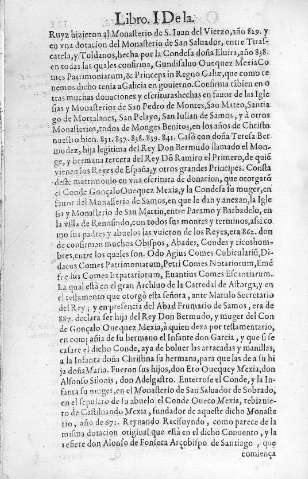 Libro. I De la
Ruyz hizieron al Monasterio de S. Iuan del Vierzo, año 829. y
en vna dotacion del Monasterio de San Saluador, entre Tirasca-
tela, y Toldanos, hecha por la Condesa doña Eluira, año 838.
en todas las quales confirma, Gundisaluo Ouequez Mexia Co
mes Patrimoniarum, & Princeps in Regno Galiæ, que como te
nemos dicho tenia a Galicia en gouierno. Confirma tābien en o
tras muchas donaciones y escrituras hechas en fauor de las Igle
sias y Monasterios de San Pedro de Montes, Sao Mateo, Santia
go de Mortalanes, San Pelayo, San Iulian de Samos, y a otros
Monasterios, todos de Monges Benitos, en los años de Christo
nuestro bien. 851. 857. 858. 859. 841. Casò con doña Teresa Ber
mudez, hija legitima del Rey Don Bermudo llamado el Mon-
ge, y hermana tercera del Rey Dō Ramiro el Primero, de quiē
vienen los Reyes de España, y otros grandes Principes. Consta
deste matrimonio en vna escritura de donacion, que otorgarō
el Conde Gonçalo Ouequez Mexia, y la Condesa su muger, en
fauor del Monasterio de Samos, en que le dan y anexan, la Igle
sia y Monasterio de San Martin, entre Paramo y Barbadelo, en
la villa de Renusindo, con todos sus montes y terminos, assi co
mo sus padres y abuelos las vuieron de los Reyes, era 862. don
de confirman muchos Obispos, Abades, Condes y ricoshom-
bres, entre los quales son. Odo Agius Comes Cubiculariū, Di-
dacus Comes Patrimoniarum, Peti Comes Notariorum, Emē
fredus Comes Expatariorum, Euantius Comes Escantiarum.
La qual està en el gran Archiuo de la Catredal de Astorga, y en
el testamento que otorgò esta señora, ante Marulo Secretario
del Rey, y en presencia del Abad Frumario de Samos, era de
889. declara ser hija del Rey Don Bermudo, y muger del Con
de Gonçalo Ouequez Mexia, à quien dexa por testamentario,
en compañia de su hermano el Infante don Garcia, y que si se
casare el dicho Conde, aya de boluer las arracadas y manillas,
a la Infanta doña Christina su hermana, para que las de a su hi
ja doña Maria. Fueron sus hijos, don Ero Ouequez Mexia, don
Alfonso Silonis, don Adelgastro. Enterrose el Conde, y la In
fanta su muger, en el Monasterio de San Maluador de Sobrado,
en el sepulcro de su abuelo el Conde Oueco Mexia, rebiznie-
to de Castinando Mexia, fundador de aqueste dicho Monaste
rio, año de 672. Reynando Recisoyndo, como parece de la
misma dotacion original que està en el dicho Conuento, y la
refiere don Alonso de Fonseca Arçobispo de Santiago, que
comiença